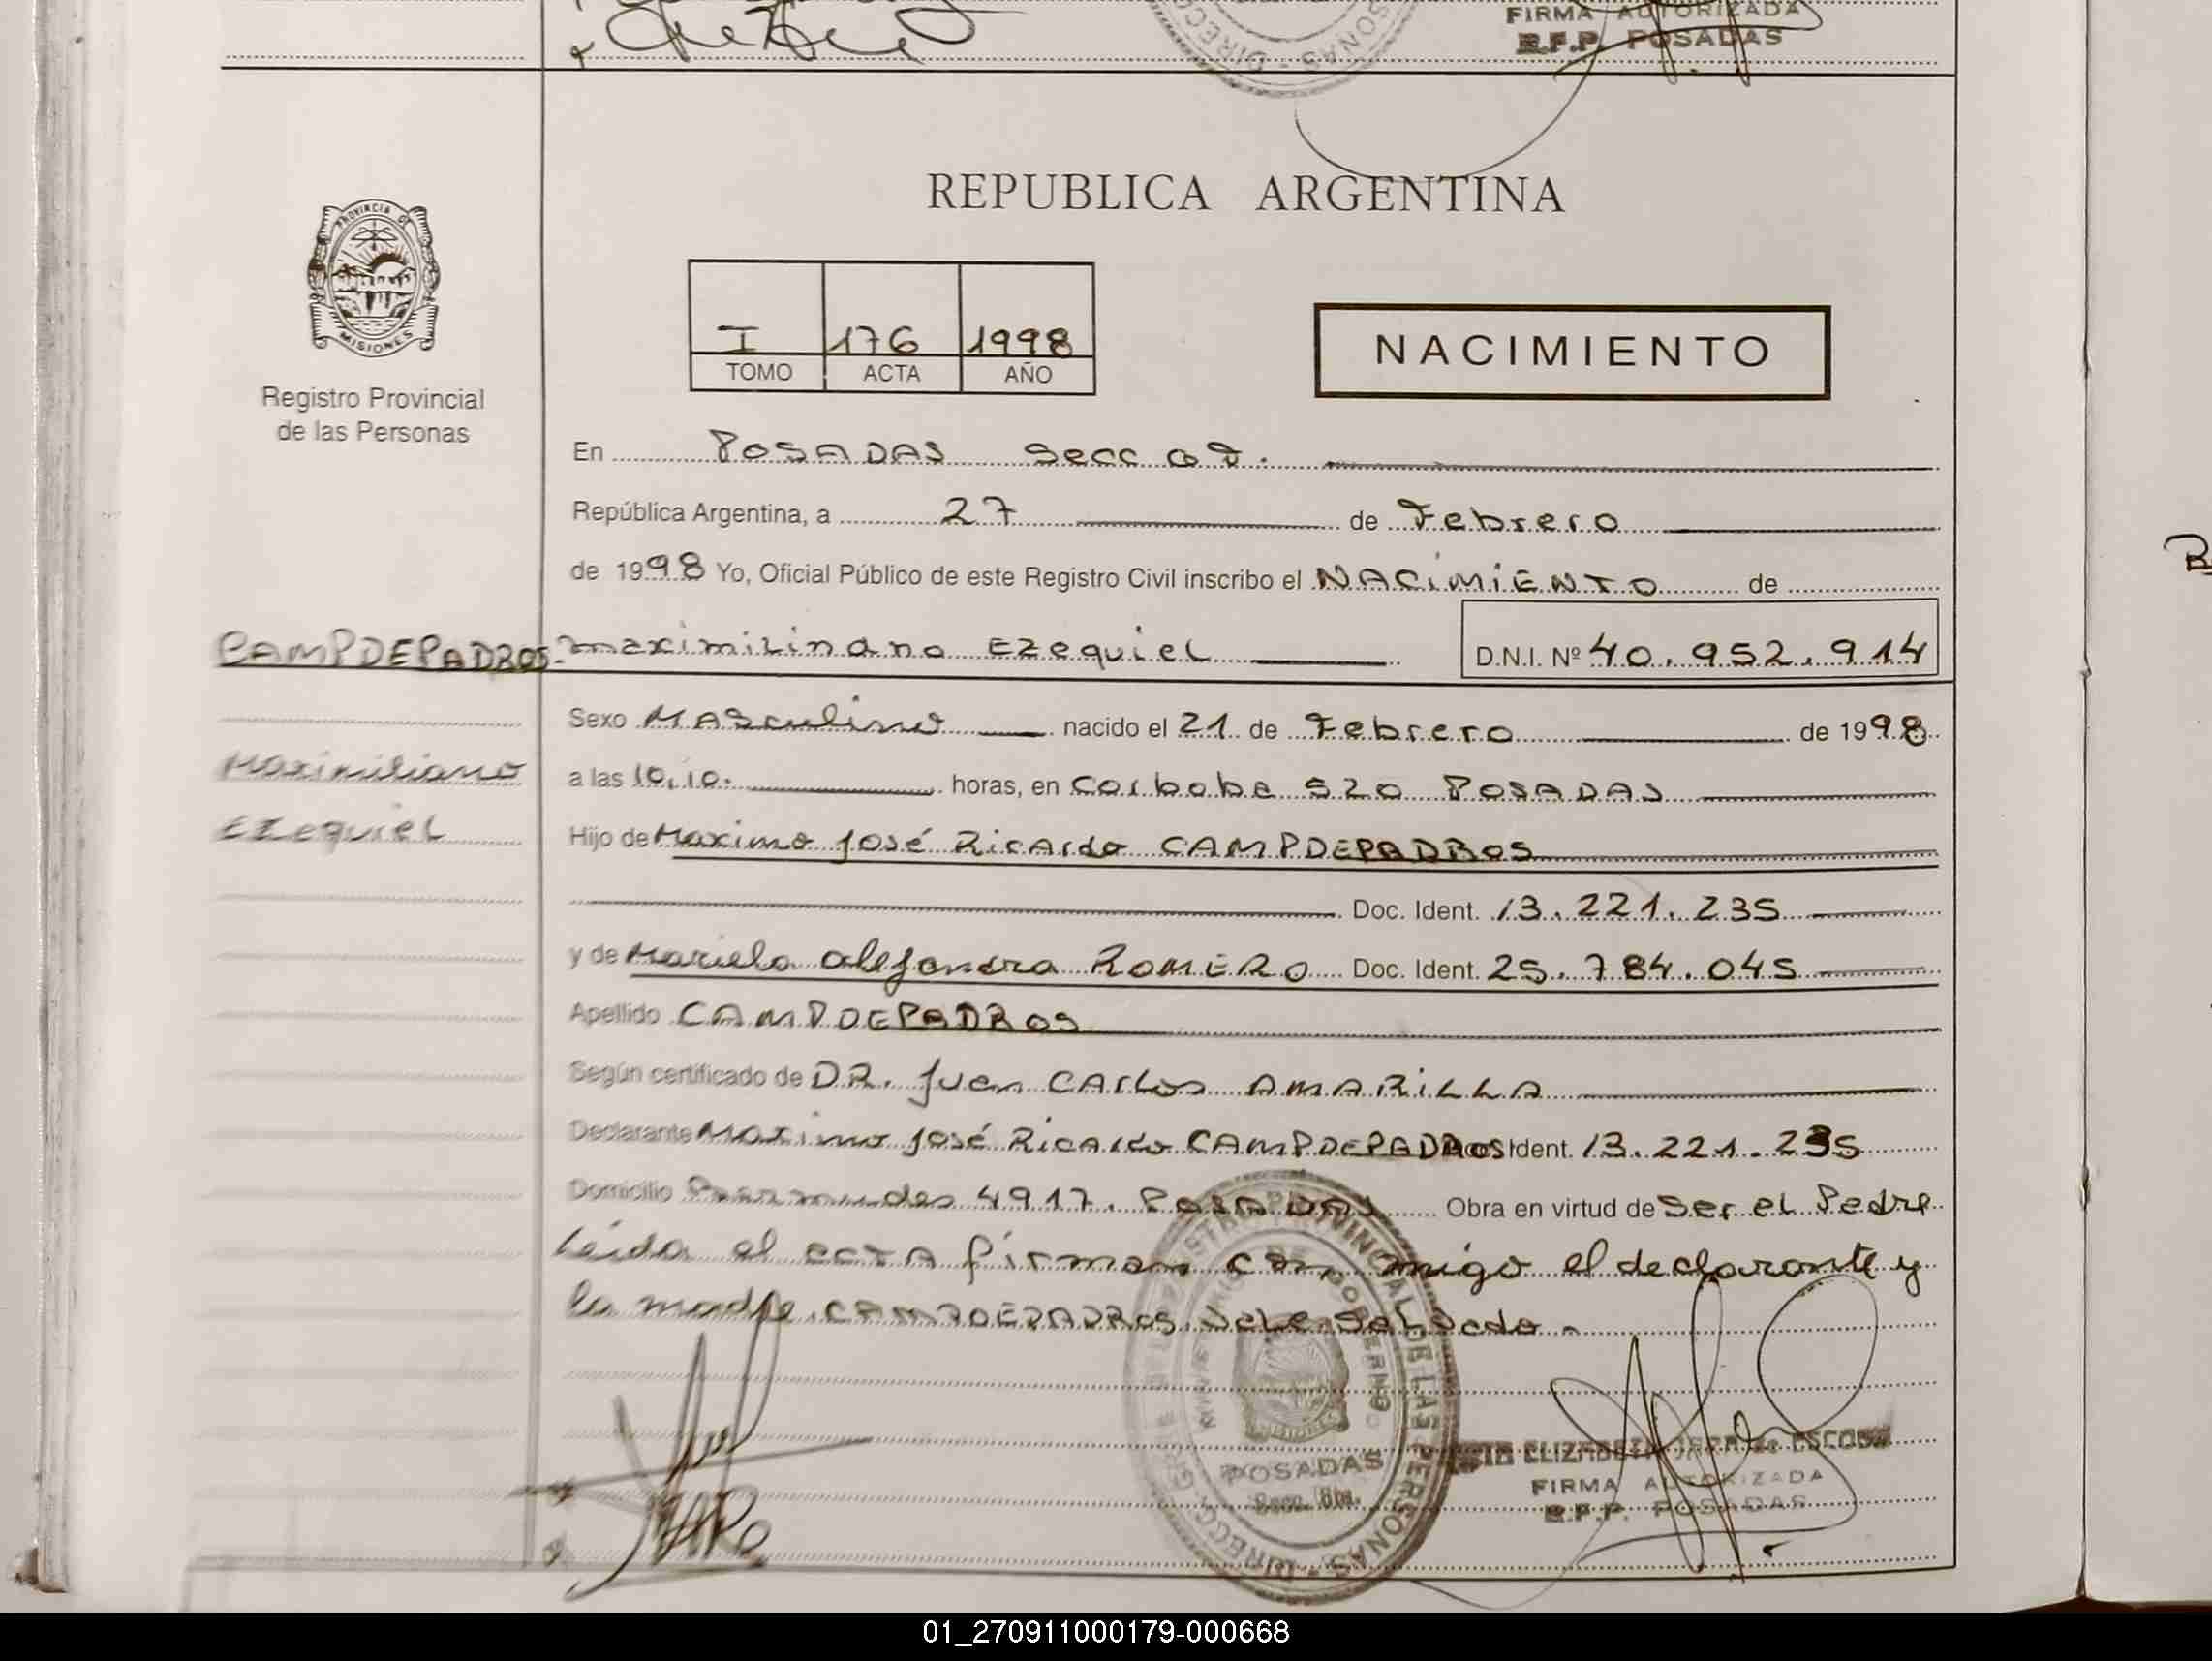 FIRMA AUTORIZADA
R.F.P. POSADAS
DIRECC
SONAS
REPUBLICA ARGENTINA
PROVINCIA DE
MISIONES
Registro Provincial
de las Personas
I 176 1998
TOMO ACTA AÑO
NACIMIENTO
En POSADAS Secc
República Argentina, a 27 de Febrero
de 1998 Yo, Oficial Público de este Registro Civil inscribo el NACIMIENTO de
CAMPDEPADROS maximilinano EZequiel D.N.I. Nº 40.952.914
Sexo MASculino nacido el 21 de Febrero de 1998
Maximiliano
a las 10,10. horas, en Corboba 520 POSADAS
EZequiel
Hijo de Maximo José Ricardo CAMPDEPADROS
Doc. Ident. 13.221.235
y de Mariela alejandra ROMERO Doc. Ident. 25.784.045
Apellido CAMPDEPADROS
Según certificado de DR. Juan CArlos AMARILLA
Declarante Maximo José Ricardo CAMPDEPADROS Ident. 13.221.235
Domicilio 4917. POSADAS Obra en virtud de Ser el Padre
Leida el acta firman con migo el declarante y
la madre. CAMPDEPADROS. Vale
REGISTRO PROVINCIAL DE LAS PERSONAS
MINISTERIO DE GOBIERNO
POSADAS
Secc. 8va.
ELIZABETH JARA de ESCOBAR
FIRMA AUTORIZADA
R.F.P. POSADAS
01_270911000179-000668